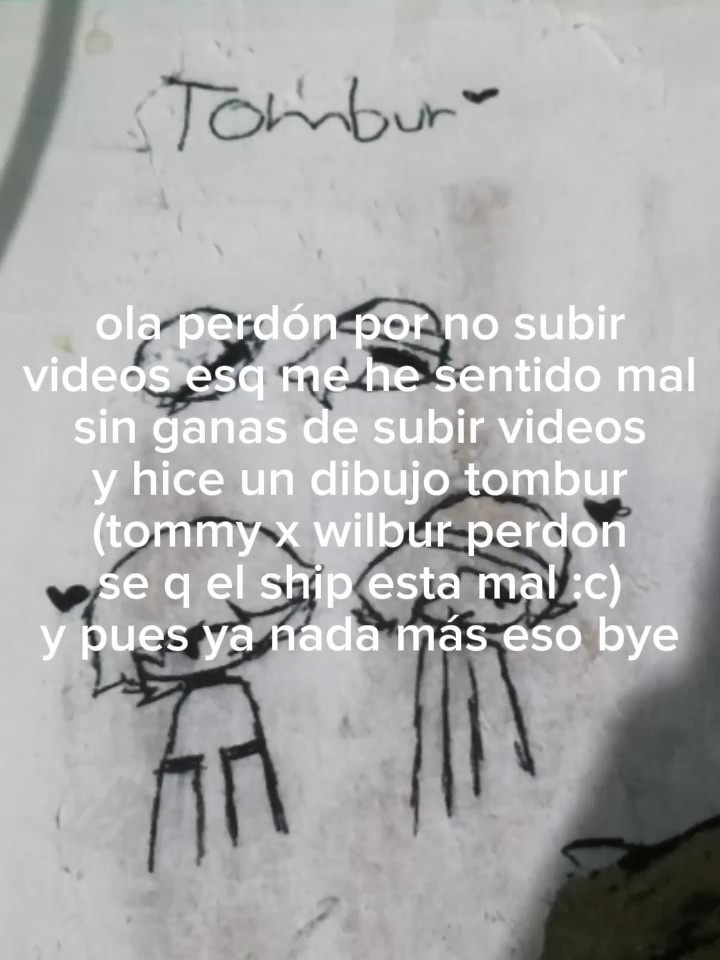 Tombur
ola perdón por no subir
videos esq me he sentido mal
sin ganas de subir videos
y hice un dibujo tombur
(tommy x wilbur perdon
se q el ship esta mal :c)
y pues ya nada más eso bye